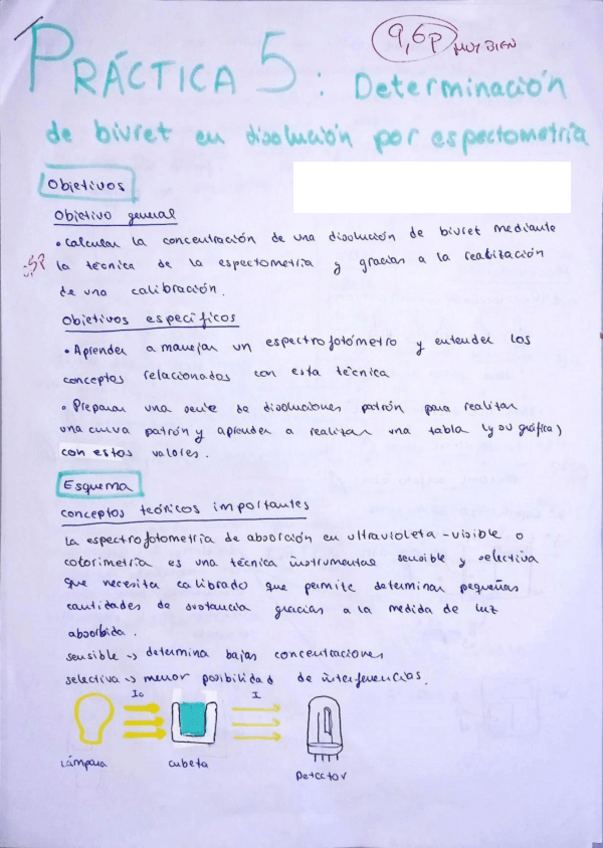 9,6p MUY BIEN
PRÁCTICA 5: Determinación
de biuret en disolución por espectometría
Objetivos
Objetivo general
• Calcular la concentración de una disolución de biuret mediante
la técnica de la espectometría y gracias a la realización
de una calibración.
Objetivos específicos
• Aprender a manejar un espectrofotómetro y entender los
conceptos relacionados con esta técnica
• Preparar una serie de disoluciones patrón para realizar
una curva patrón y aprender a realizar una tabla (y su gráfica)
con estos valores.
Esquema
conceptos teóricos importantes
la espectrofotometría de absorción en ultravioleta-visible o
colorimetría es una técnica instrumental sensible y selectiva
que necesita calibrado que permite determinar pequeñas
cantidades de sustancia gracias a la medida de luz
absorbida.
sensible → determina bajas concentraciones
selectiva → menor posibilidad de interferencias.
I₀ I
Lámpara cubeta Detector